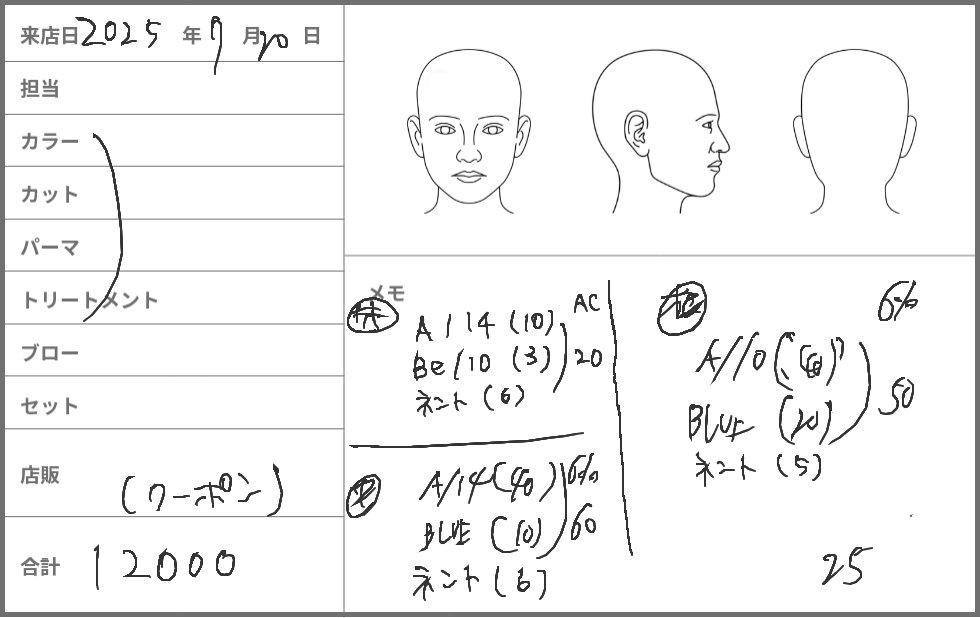 来店日 2025 年 7 月 20 日
担当
カラー
カット
パーマ
トリートメント
ブロー
セット
店販
(クーポン)
合計 12000
メモ
AC
A/14 (10)
Be/10 (3) 20
ネント (6)
A/14 (40) 6%
BLUE (10) 60
ネント (6)
6%
A/10 (60)
BLUE (20) 50
ネント (5)
25